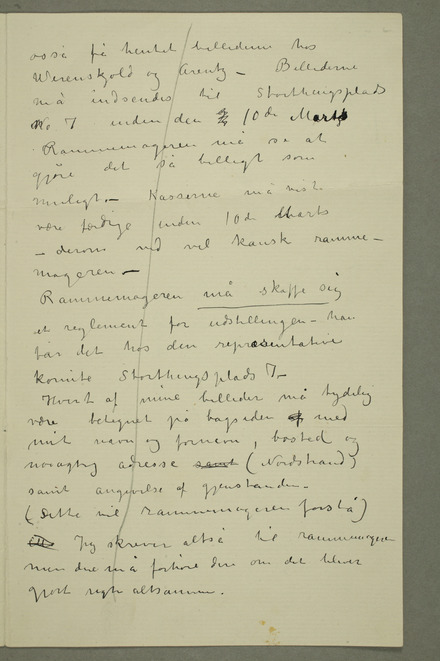 også få hentet billederne hos
Werenskold og Arentz – Billederne
må indsendes til Storthingsplads
No 7 inden den 10de Marts
Rammemageren må se at
gjøre det så billigt som
muligt. – Kasserne må vist
være færdige inden 10de Marts
– derom ved vel kansk ramme-
mageren –
Rammemageren må skaffe sig
et reglement for udstillingen – han
får det hos den representative
komite Storthingsplads 7. –
Hvert af mine billeder må tydelig
være betegnet på bagsiden af med
mit navn og fornavn, bosted og
nøiagtig adresse samt (Nordstrand)
samt angivelse af gjenstanden. –
(Dette vil rammemageren forstå)
Jeg skriver altså til rammemageren
men du må forhøre dig om det bliver
gjort altsammen.